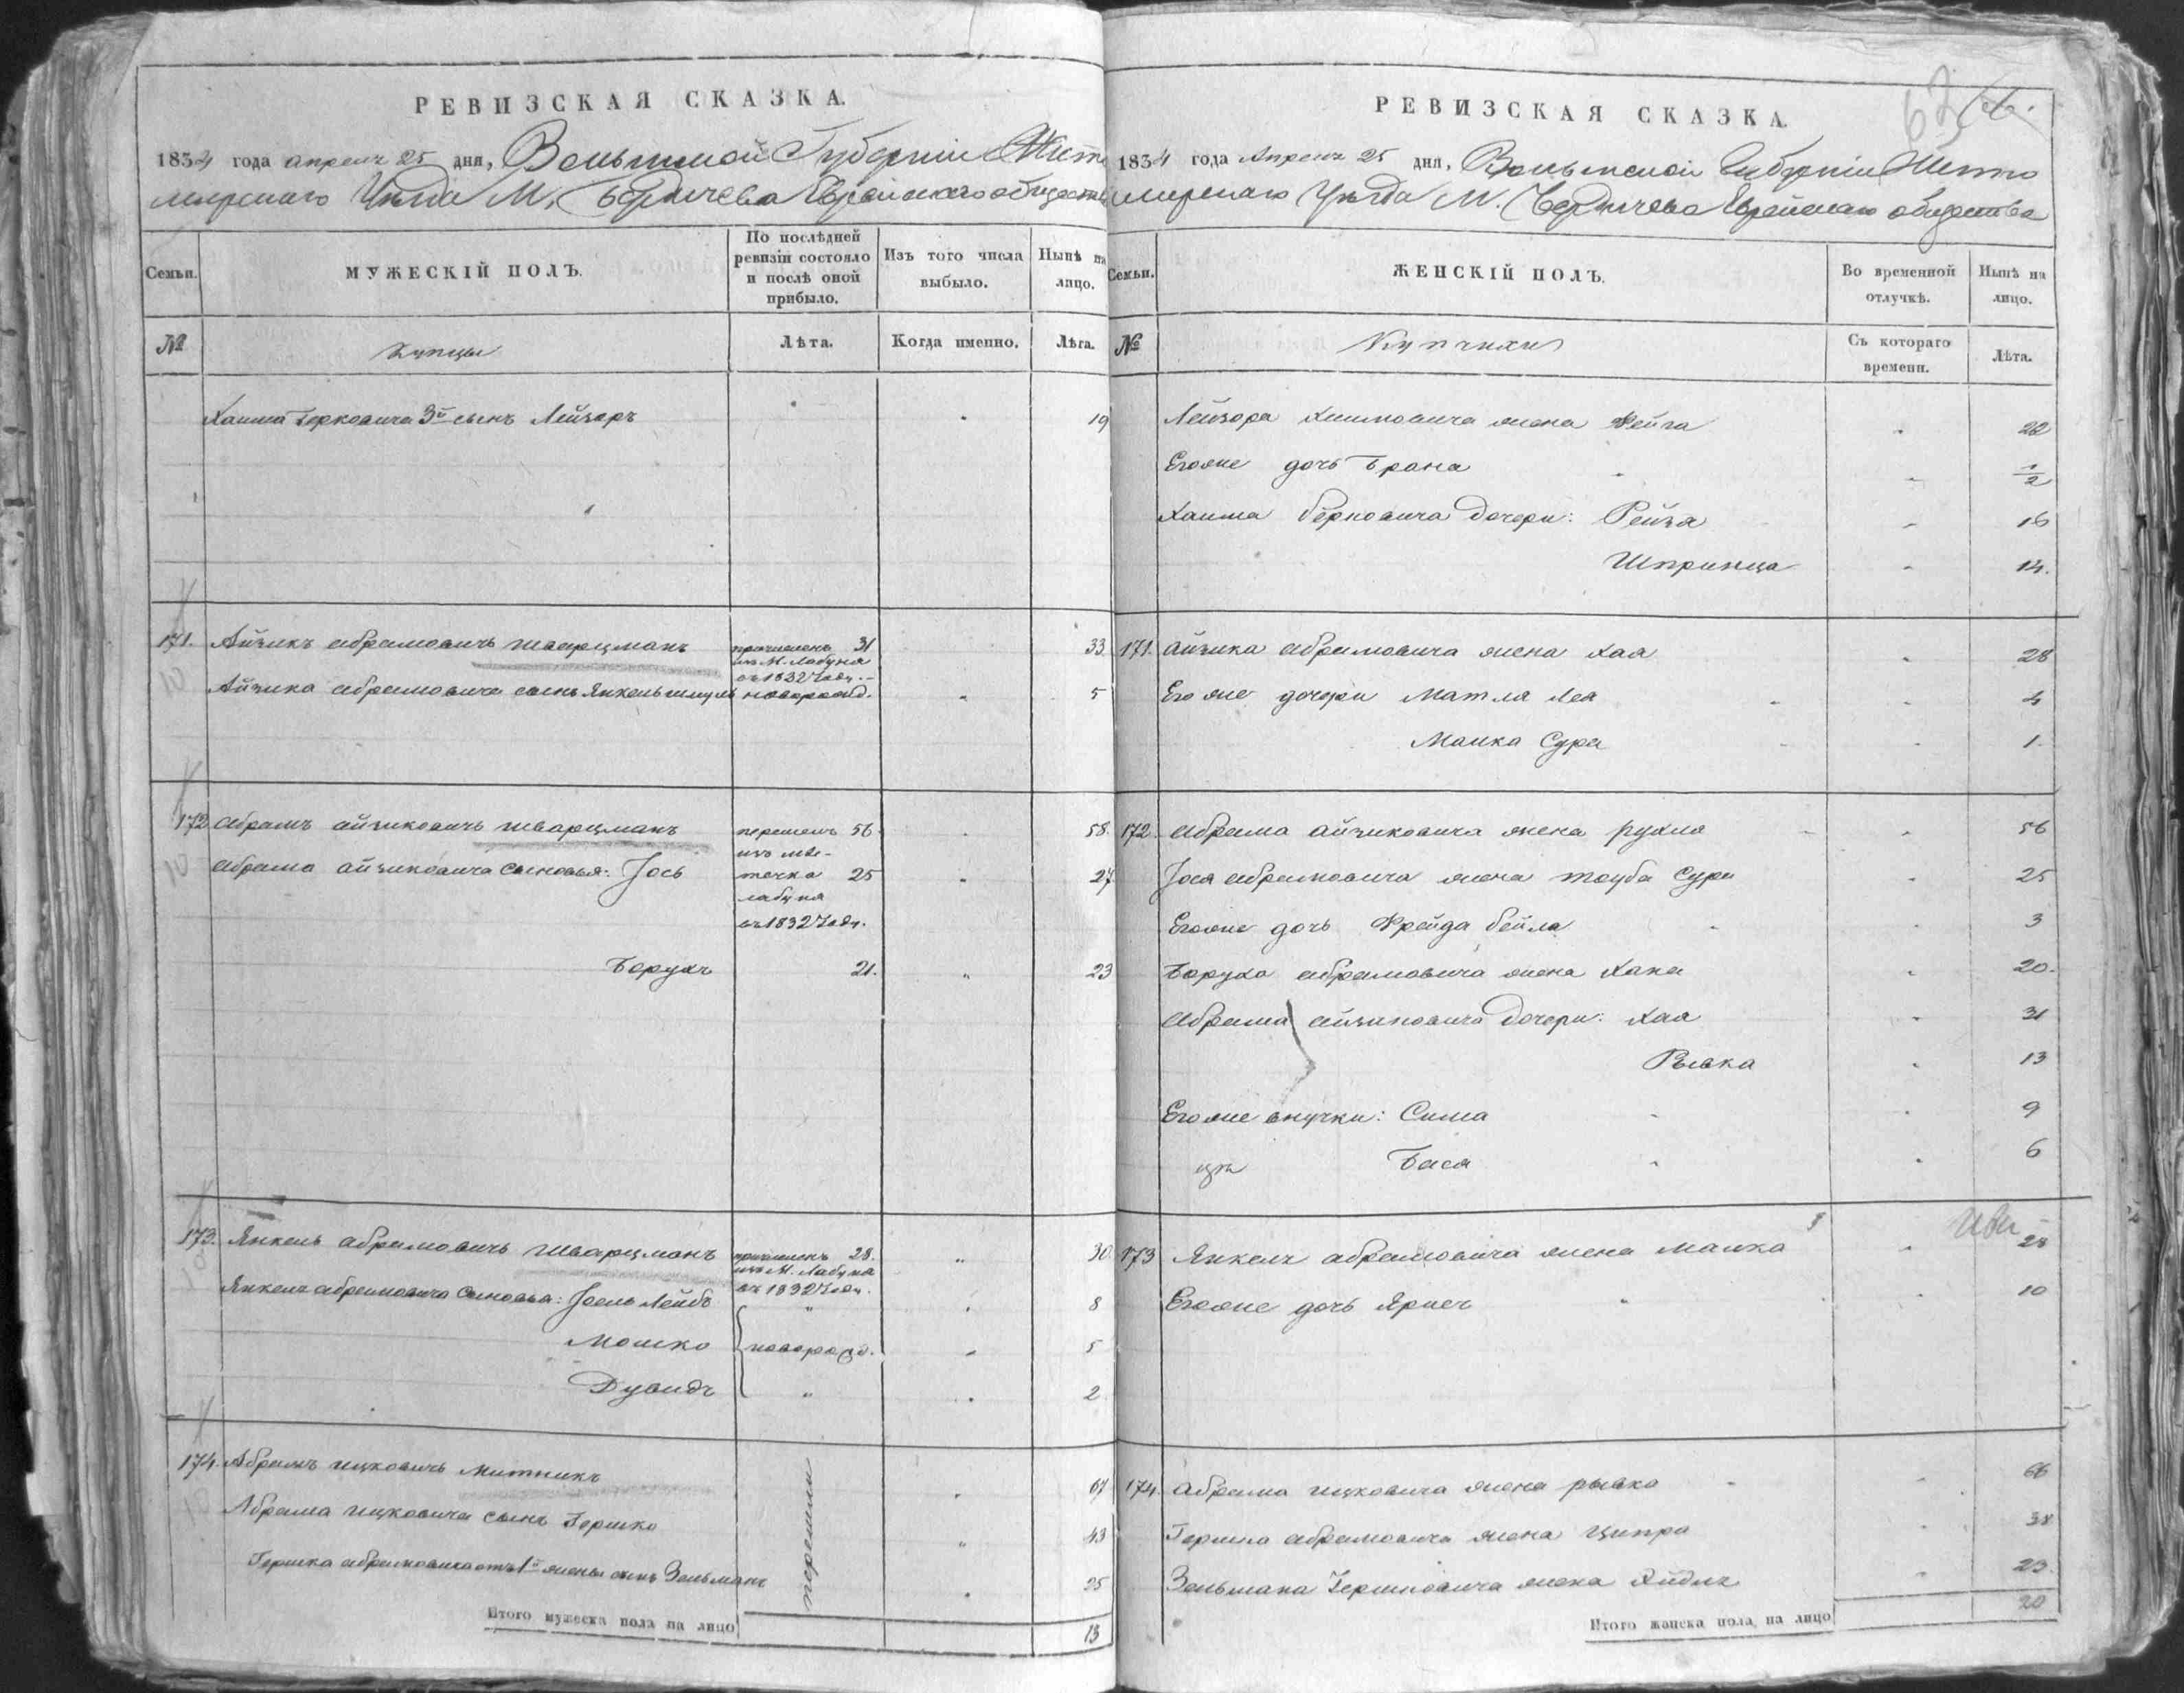 РЕВИЗСКАЯ СКАЗКА.
1834 года апреля 25 дня, Волынской Губерніи Жито
мирскаго Уѣзда М. Бердичева Еврейскаго общества
Семьи.
МУЖЕСКІЙ ПОЛЪ.
По послѣдней ревизіи состояло и послѣ оной прибыло.
Изъ того числа выбыло.
Нынѣ на лицо.
№
Купцы
Лѣта.
Когда именно.
Лѣта.
Хаима Берковича 3й сынъ Лейзоръ 19
171. Айзикъ Абрамовичъ Шварцманъ причисленъ 31 33
изъ М. Лабуня
въ 1832 году.
Айзика Абрамовича сынъ Янкель Шмуль новорожд. " 5
172 Абрамъ Айзиковичъ Шварцманъ перешелъ 56 " 58.
изъ мѣ-
Абрама Айзиковича сыновья: Іось течка 25 " 27
лабуня
въ 1832 году.
Борухъ 21. " 23
173. Янкель Абрамовичъ Шварцманъ причисленъ 28. " 30
изъ М. Лабуня
въ 1832 году.
Янкеля Абрамовича сыновья: Іосль Лейбъ " " 8
Мошко новорожд. " 5
Дувидъ " " 2
174. Абрамъ Ицковичъ Митникъ " 67
перешли
Абрама Ицковича сынъ Гершко " 43
Гершка Абрамовича отъ 1й жены сынъ Зельманъ " 25
Итого мужеска пола на лицо 13
РЕВИЗСКАЯ СКАЗКА.
1834 года Апреля 25 дня, Волынской Губерніи Жито
мирскаго Уѣзда М. Бердичева Еврейскаго общества
Семьи.
ЖЕНСКІЙ ПОЛЪ.
Во временной отлучкѣ.
Нынѣ на лицо.
№
Купчихи
Съ котораго времени.
Лѣта.
Лейзора Хаимовича жена Фейга " 22
Егоже дочь Брана " 1/2
Хаима Берковича дочери: Рейза " 16
Шпринца " 14.
171. Айзика Абрамовича жена Хая " 28
Его же дочери Матля Лея " 4
Малка Сура " 1.
172. Абрама Айзиковича жена Рухля " 56
Іося Абрамовича жена Тауба Сура " 25
Егоже дочь Фрейда Бейла " 3
Боруха Абрамовича жена Хана " 20.
Абрама Айзиковича дочери: Хая " 31
Рывка " 13
Егоже внучки: Сима " 9
Бася " 6
173 Янкеля Абрамовича жена Малка " 28
Егоже дочь " 10
174. Абрама Ицковича жена Рывка " 66
Гершка Абрамовича жена Ципра " 38
Зельмана Гершковича жена " 23.
Итого женска пола на лицо 20